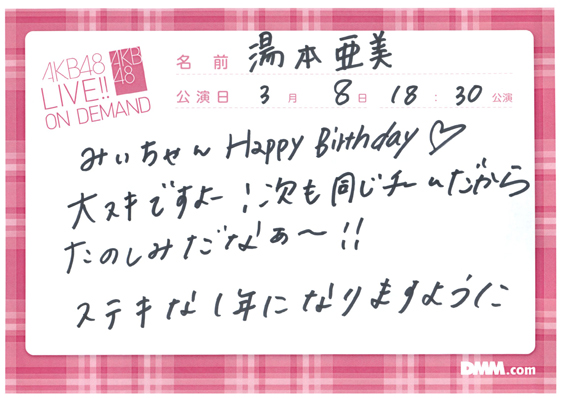 AKB48
LIVE!!
ON DEMAND
AKB
48
名前 湯本亜美
公演日 3月 8日 18:30公演
みぃちゃん Happy Birthday♡
大スキですよー!次も同じチームだから
たのしみだなぁ〜!!
ステキな1年になりますように
DMM.com